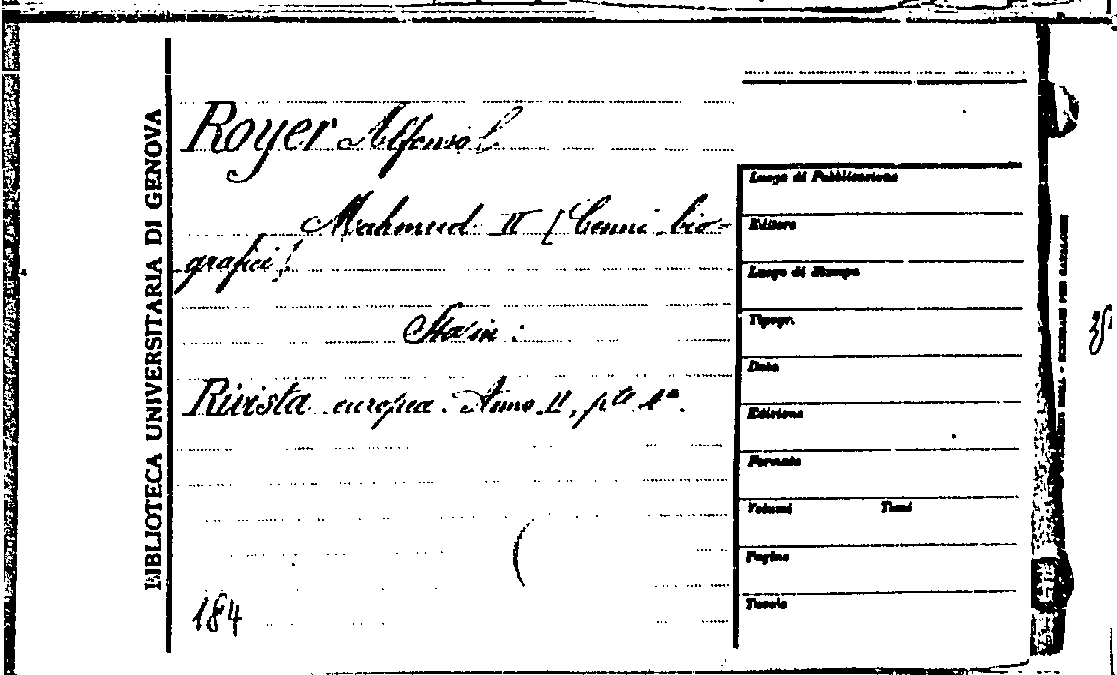 BIBLIOTECA UNIVERSITARIA DI GENOVA
Royer Alfonso
Mahmud II (Cenni bio-
grafici)
Sta in:
Rivista europea. Anno II, pte 1a.
184
Luogo di Pubblicazione
Editore
Luogo di Stampa
Tipogr.
Data
Edizione
Formato
Volumi Tomi
Pagine
Tavole